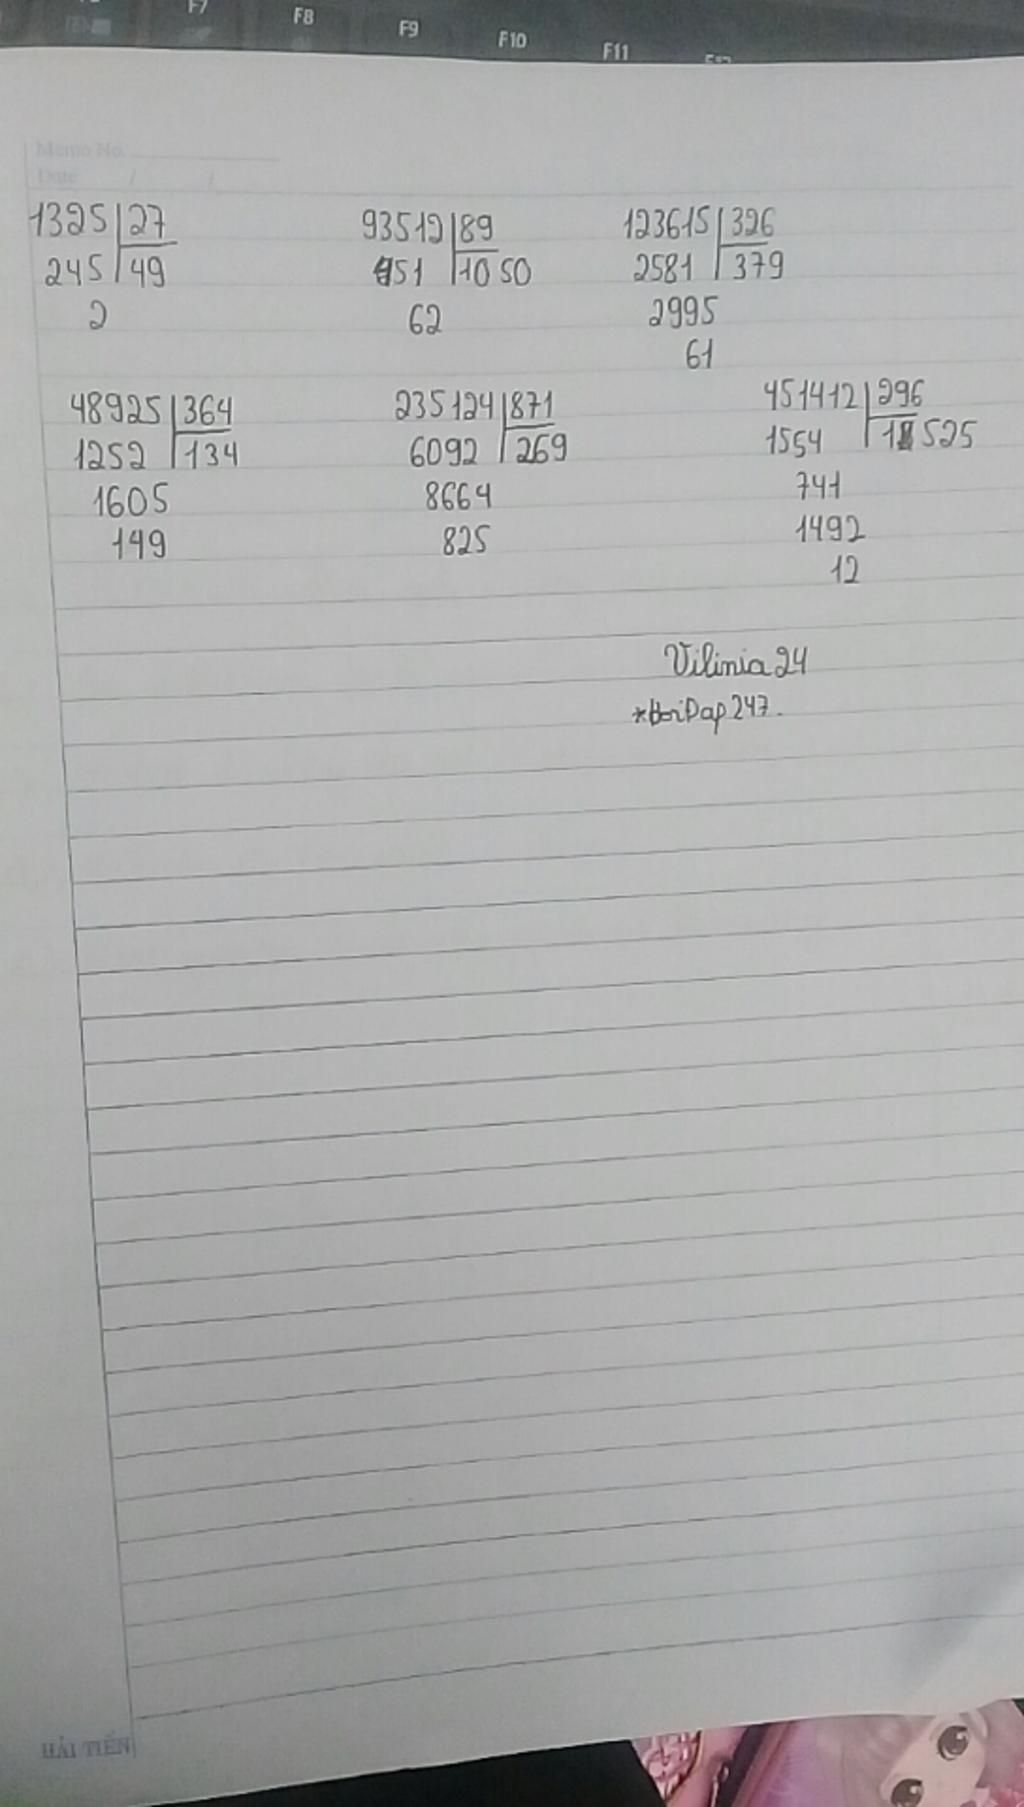 F7 F8 F9 F10 F11
Memo No.
Date / /
1325 27 93512 89 123615 326
245 49 451 1050 2581 379
2 62 2995
61
48925 364 235124 871 451412 296
1252 134 6092 269 1554 1525
1605 8664 741
149 825 1492
12
Vilinia24
*HoiDap247.
HẢI TIẾN